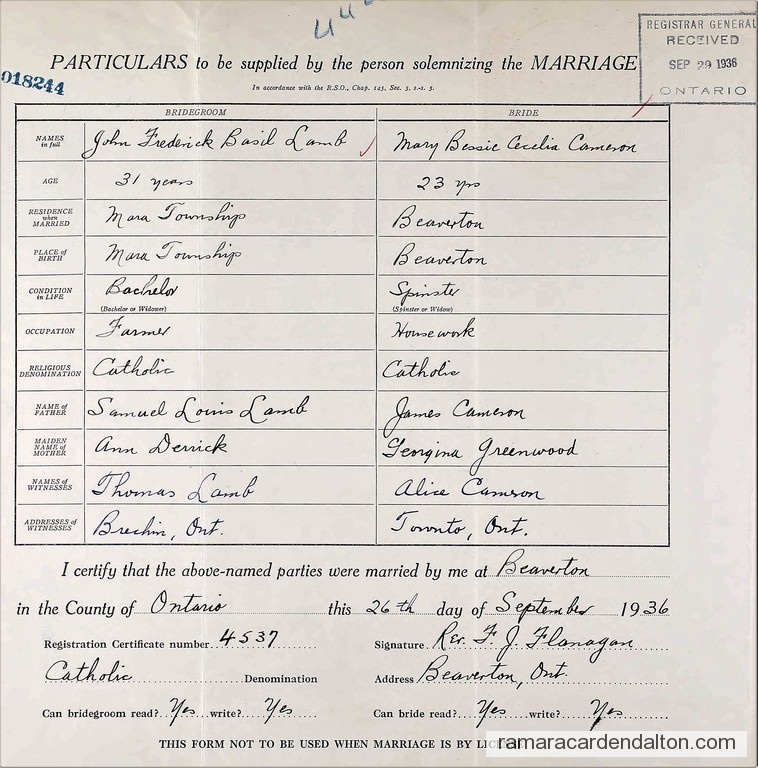 REGISTRAR GENERAL
RECEIVED
SEP 29 1936
ONTARIO
PARTICULARS to be supplied by the person solemnizing the MARRIAGE
018244
In accordance with the R.S.O., Chap. 145, Sec. 3, 1-2. 5.
BRIDEGROOM BRIDE
NAMES in full John Frederick Basil Lamb Mary Bessie Cecelia Cameron
AGE 31 years 23 yrs
RESIDENCE when MARRIED Mara Township Beaverton
PLACE of BIRTH Mara Township Beaverton
CONDITION in LIFE Bachelor Spinster
(Bachelor or Widower) (Spinster or Widow)
OCCUPATION Farmer Housework
RELIGIOUS DENOMINATION Catholic Catholic
NAME of FATHER Samuel Louis Lamb James Cameron
MAIDEN NAME of MOTHER Ann Derrick Georgina Greenwood
NAMES of WITNESSES Thomas Lamb Alice Cameron
ADDRESSES of WITNESSES Brechin, Ont. Toronto, Ont.
I certify that the above-named parties were married by me at Beaverton
in the County of Ontario this 26th day of September 1936
Registration Certificate number 4537 Signature Rev. F. J. Flanagan
Catholic Denomination Address Beaverton, Ont.
Can bridegroom read? Yes write? Yes Can bride read? Yes write? Yes
THIS FORM NOT TO BE USED WHEN MARRIAGE IS BY
ramaracardendalton.com